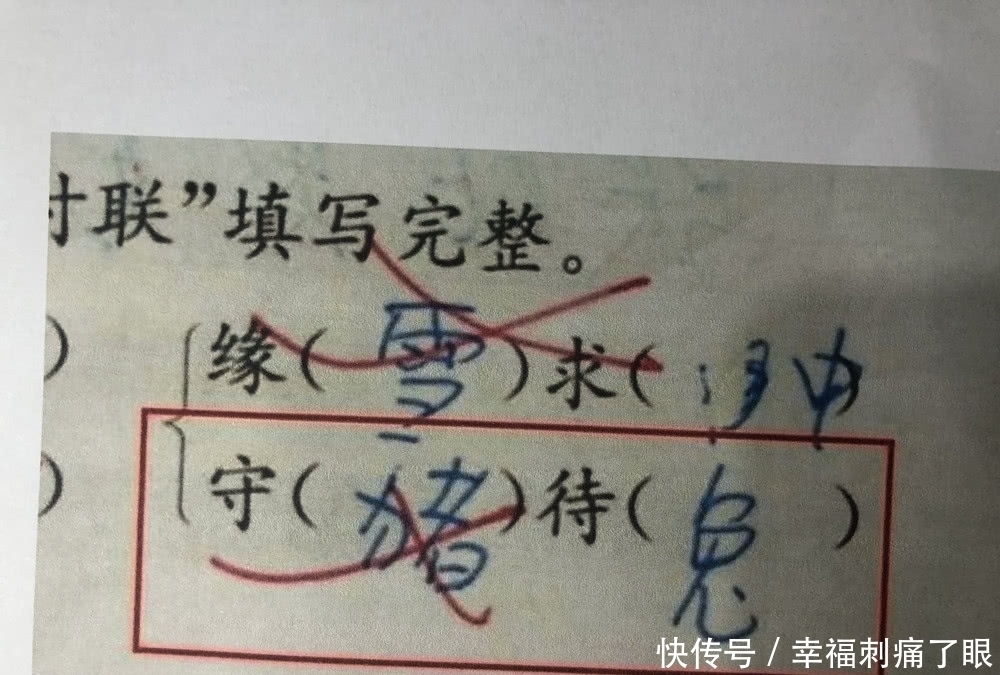 对联”填写完整。
) 缘(雪)求()
) 守(猪)待(兔)
快传号/幸福刺痛了眼